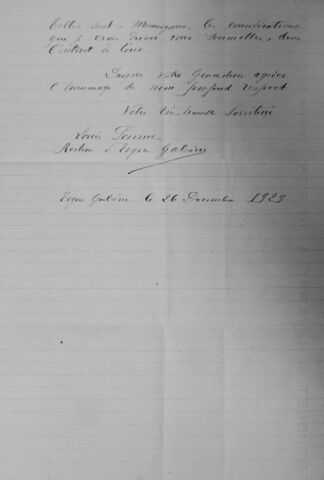 Telles sont, Monseigneur, les considérations
que je crois devoir vous soumettre, dans
l'intérêt de tous.
Daigne Votre Grandeur agréer
l'hommage de mon profond respect
Votre très humble serviteur
Louis
Recteur d'Ergué Gabéric
Ergué Gabéric le 26 Décembre 1929